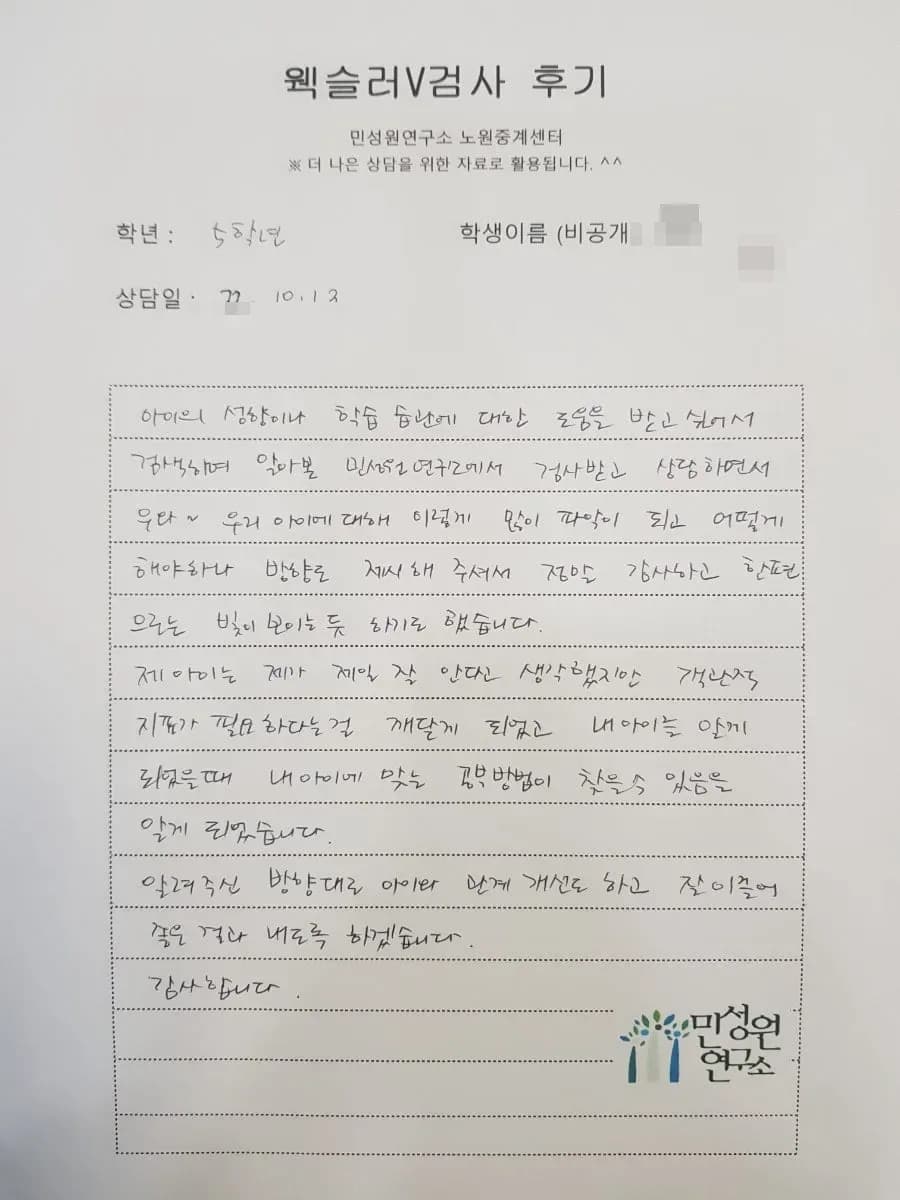 웩슬러V검사 후기
민성원연구소 노원중계센터
※ 더 나은 상담을 위한 자료로 활용됩니다. ^^
학년 : 5학년 학생이름 (비공개
상담일 · 22. 10.12
아이의 성향이나 학습 습관에 대한 도움을 받고 싶어서
검색하며 알아본 민성원연구소에서 검사받고 상담하면서
우와~ 우리 아이에 대해 이렇게 많이 파악이 되고 어떻게
해야하나 방향도 제시해 주셔서 정말 감사하고 한편
으로는 빛이 보이는 듯 하기도 했습니다.
제 아이는 제가 제일 잘 안다고 생각했지만 객관적
지표가 필요하다는걸 깨닫게 되었고 내 아이를 알게
되었을때 내 아이에 맞는 공부방법이 찾을수 있음을
알게 되었습니다.
알려주신 방향대로 아이와 관계 개선도 하고 잘 이끌어
좋은 결과 내도록 하겠습니다.
감사합니다.
민성원
연구소